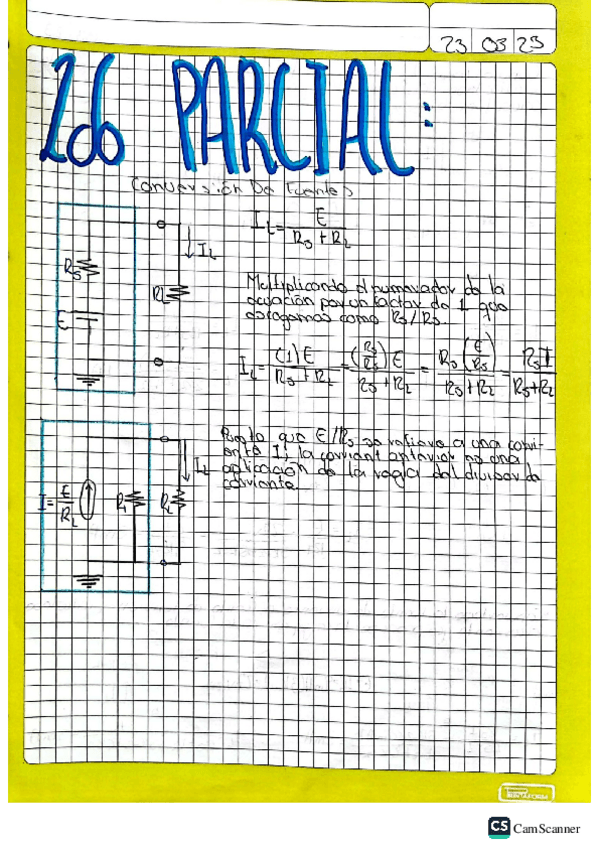 23 03 23
2do PARCIAL:
Conversión De fuentes
I_L = E / (Rs + RL)
Rs
E
RL
IL
Multiplicando el numerador de la
ecuación por un factor de 1 que
escogemos como Rs/Rs.
I_L = (1)E / (Rs + RL) = (Rs/Rs)E / (Rs + RL) = Rs(E/Rs) / (Rs + RL) = RsI / (Rs + RL)
Puesto que E/Rs se refiere a una corri-
ente I, la corriant anterior es una
aplicación de la regla del divisor de
corriente.
I = E/RL
RL
IL
CS CamScanner